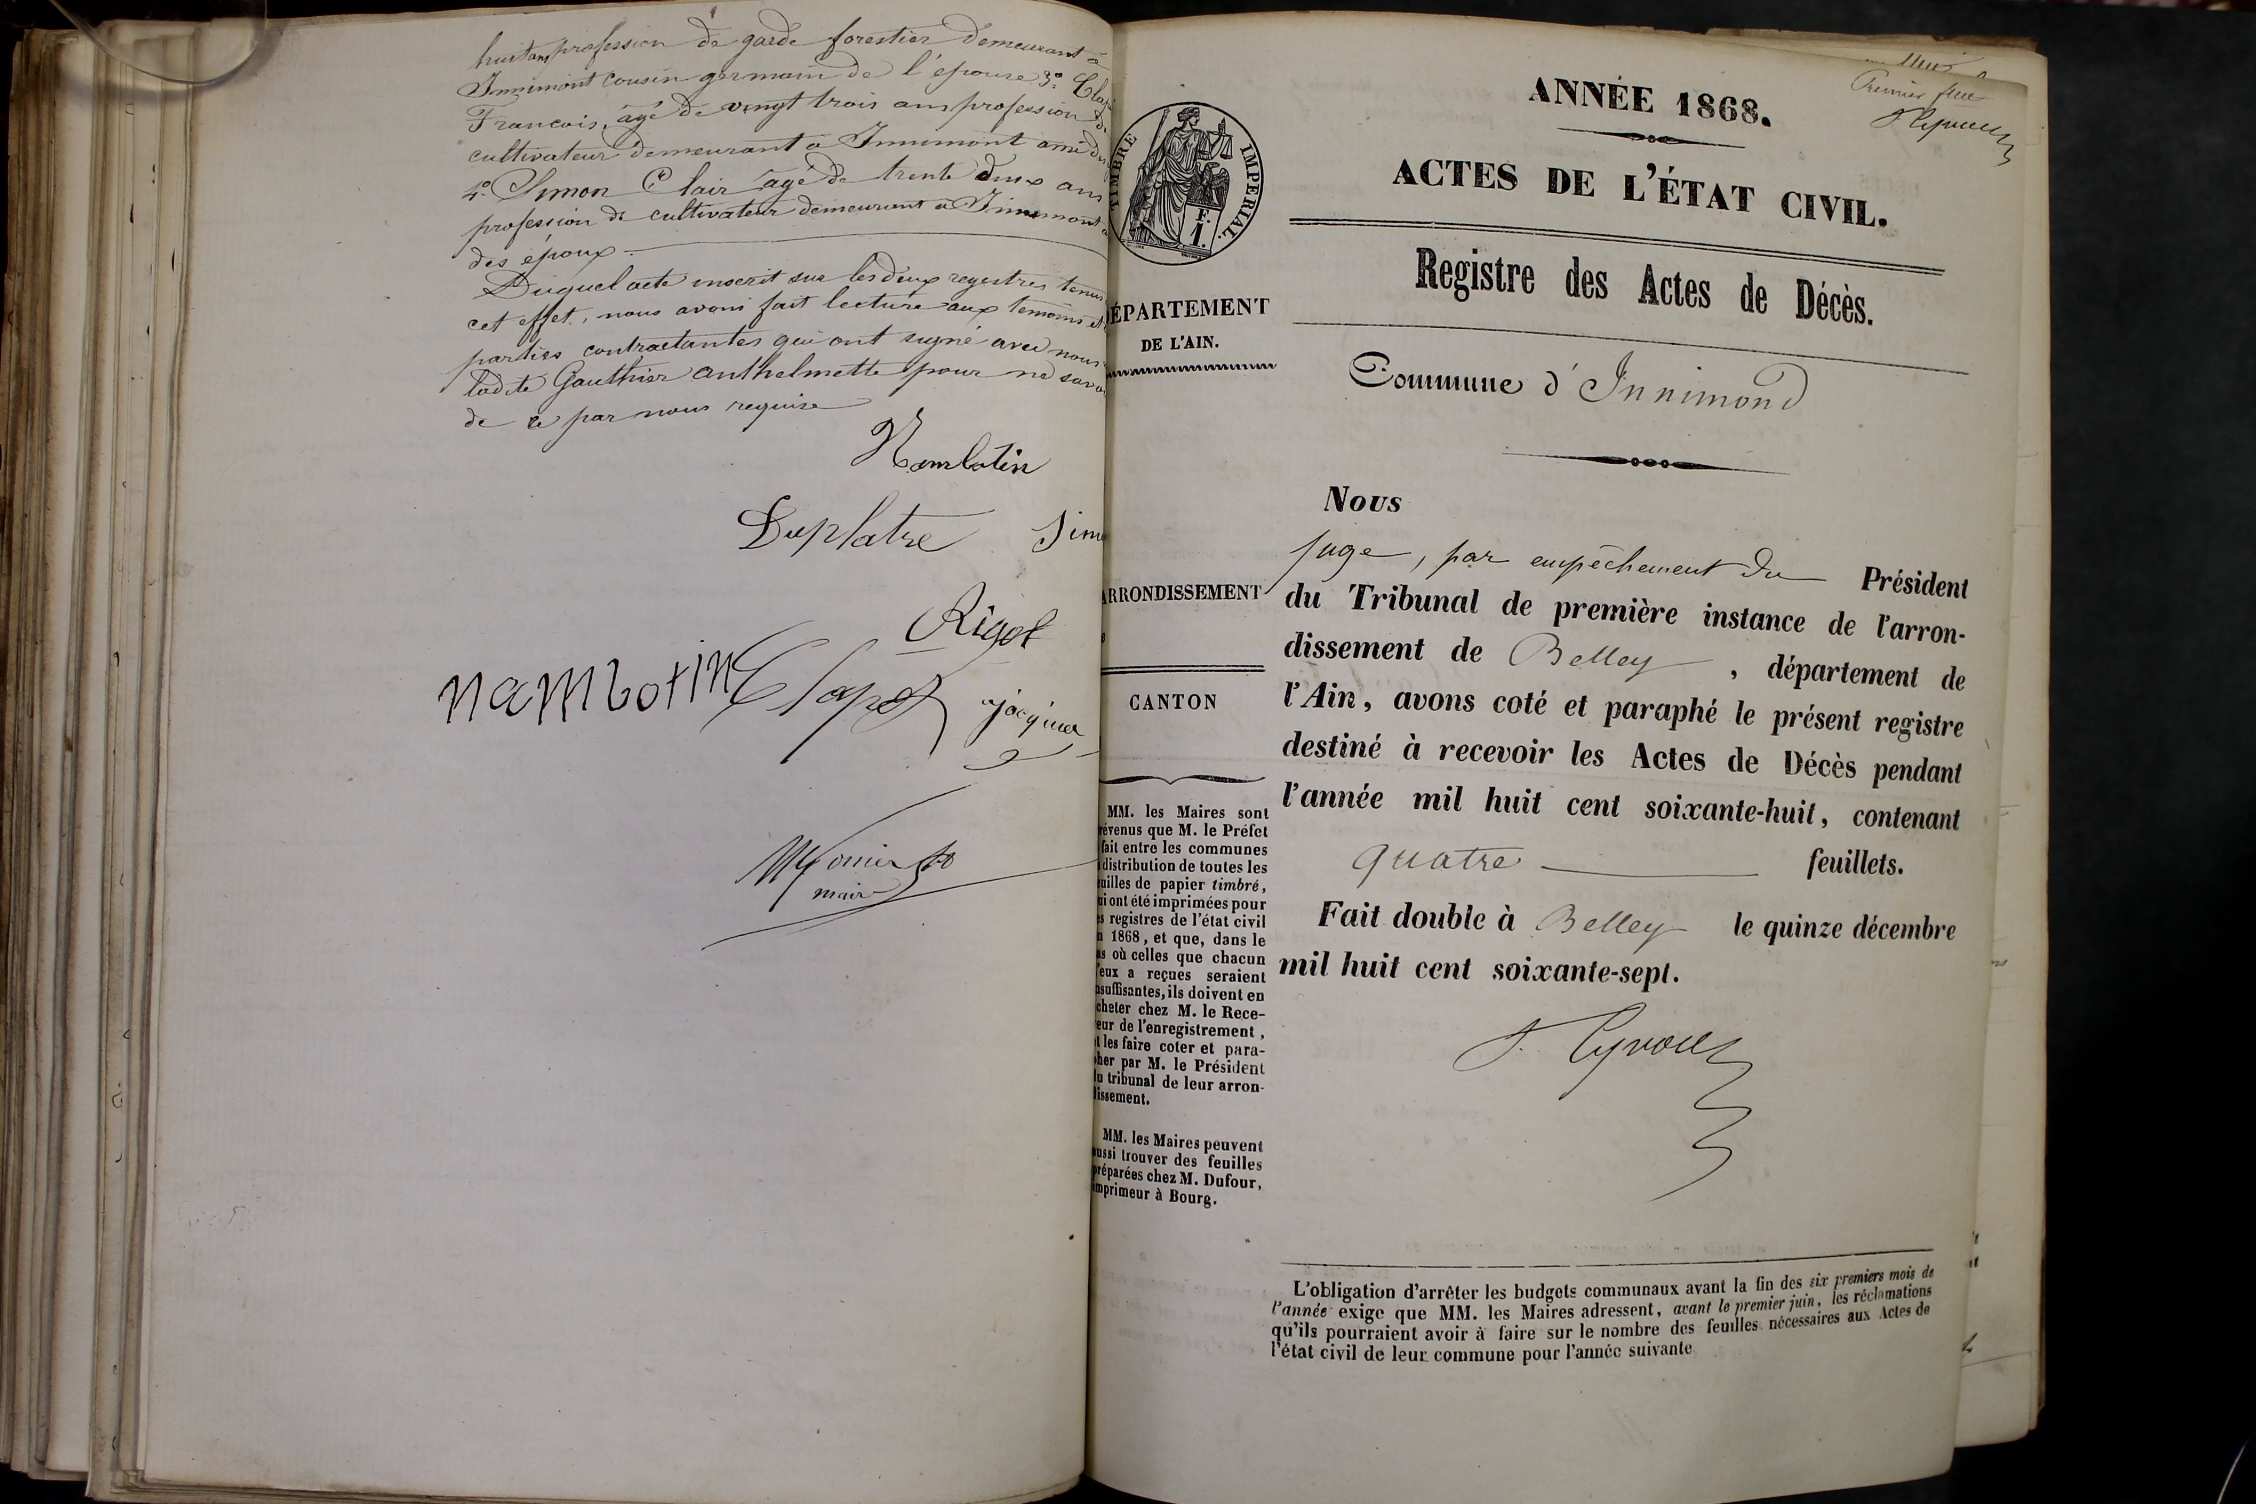 huit ans profession de garde forestier demeurant à
Innimont cousin germain de l'épouse 3º
Francois, âgé de vingt trois ans profession de
cultivateur demeurant a Innimont ami
4º Simon Clair âgé de trente deux ans
profession de cultivateur demeurant a Innimont
des époux
Duquel acte inscrit sur les deux registres tenus
cet effet, nous avons fait lecture aux temoins et
parties contractantes qui ont signé avec nous
ladite Gauthier anthelmette pour ne
de ce par nous requise
Nambotin
Duplatre
Rigot
nambotin Clapot
mair
TIMBRE IMPERIAL.
F.
1.
ÉPARTEMENT
DE L'AIN.
ARRONDISSEMENT
CANTON
MM. les Maires sont
révenus que M. le Préfet
fait entre les communes
distribution de toutes les
euilles de papier timbré,
ui ont été imprimées pour
es registres de l'état civil
n 1868, et que, dans le
as où celles que chacun
'eux a reçues seraient
nsuffisantes, ils doivent en
cheter chez M. le Rece-
eur de l'enregistrement,
t les faire coter et para-
pher par M. le Président
du tribunal de leur arron-
dissement.
MM. les Maires peuvent
aussi trouver des feuilles
préparées chez M. Dufour,
imprimeur à Bourg.
Premier
ANNÉE 1868.
ACTES DE L'ÉTAT CIVIL.
Registre des Actes de Décès.
Commune d'Innimond
Nous
juge, par empêchement du Président
du Tribunal de première instance de l'arron-
dissement de Belley, département de
l'Ain, avons coté et paraphé le présent registre
destiné à recevoir les Actes de Décès pendant
l'année mil huit cent soixante-huit, contenant
quatre feuillets.
Fait double à Belley le quinze décembre
mil huit cent soixante-sept.
L'obligation d'arrêter les budgets communaux avant la fin des six premiers mois de
l'année exige que MM. les Maires adressent, avant le premier juin, les réclamations
qu'ils pourraient avoir à faire sur le nombre des feuilles nécessaires aux Actes de
l'état civil de leur commune pour l'année suivante